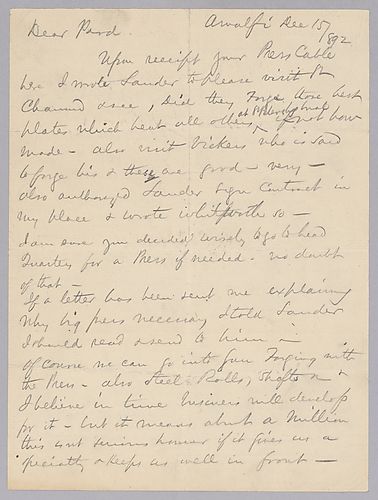 Dear Pard.
Amalfi Dec 15/
1892
Upon receipt your Press Cable
here I wrote Lauder to please visit St
Chamond & see, Did they Forge those best
plates which beat all others, if not how
at
made – also visit Vickers who is said
to forge his & these are good – very –
also authorized Lauder sign Contract in
my place & wrote Whitworth so –
I am sure you decided wisely to go to head
Quarters for a Press if needed – no doubt
of that –
If a letter has been sent me explaining
Why big press necessary I told Lauder
I should read & send to him –
Of course we can go into Gun Forging with
the Press – also Steel Rolls, Shafts &
I believe in time business will develop
for it – but it means about a Million
this isnt serious however if it gives us a
specialty & keeps us well in front –